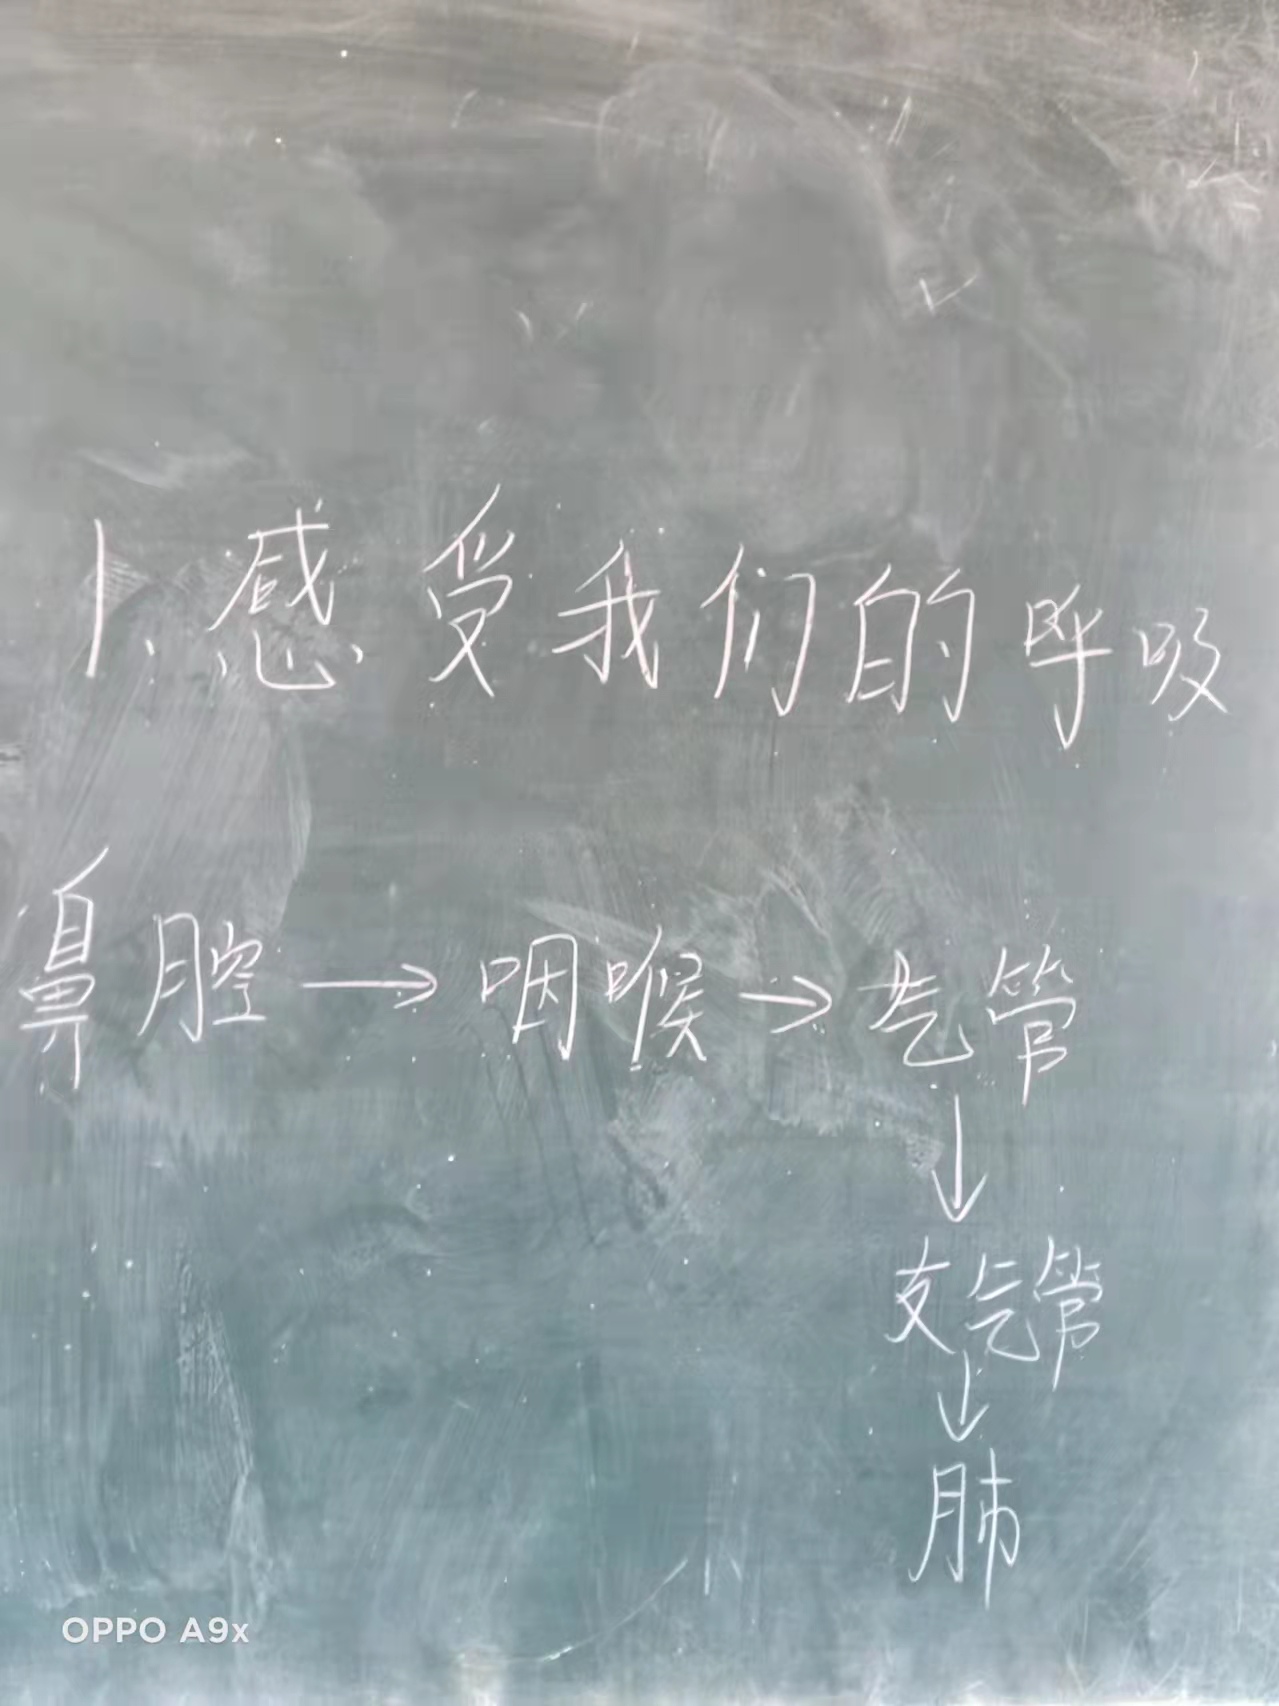 1、感受我们的呼吸
鼻腔→咽喉→气管
↓
支气管
↓
肺
OPPO A9x